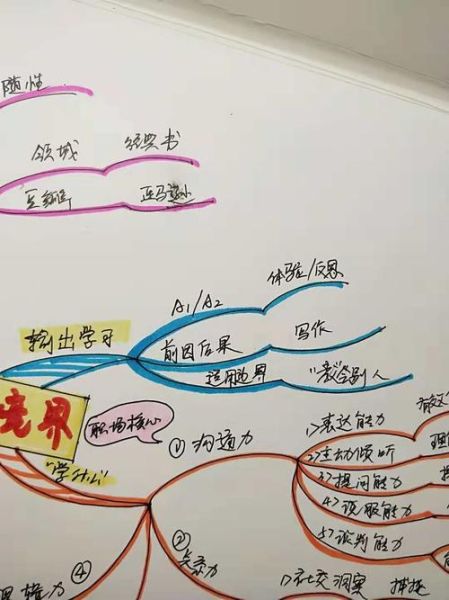 随性
领域 经典书
豆瓣 亚马逊
体验/反思
A1/A2
输出学习
前因后果 写作
适用边界 "教"会别人
境界
职场核心
"学什么"
①沟通力
1>表达能力
2>主动倾听
3>提问能力
4>说服能力
5>谈判能力
②关系力
④
1>社交洞察 捕捉